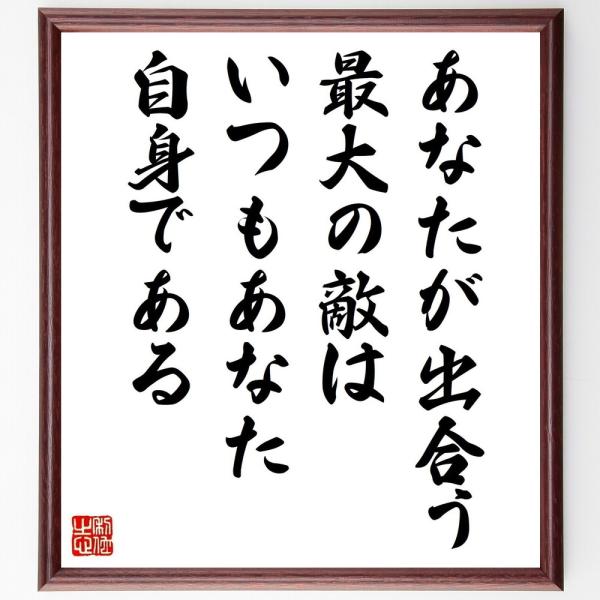 あなたが出合う
最大の敵は
いつもあなた
自身である